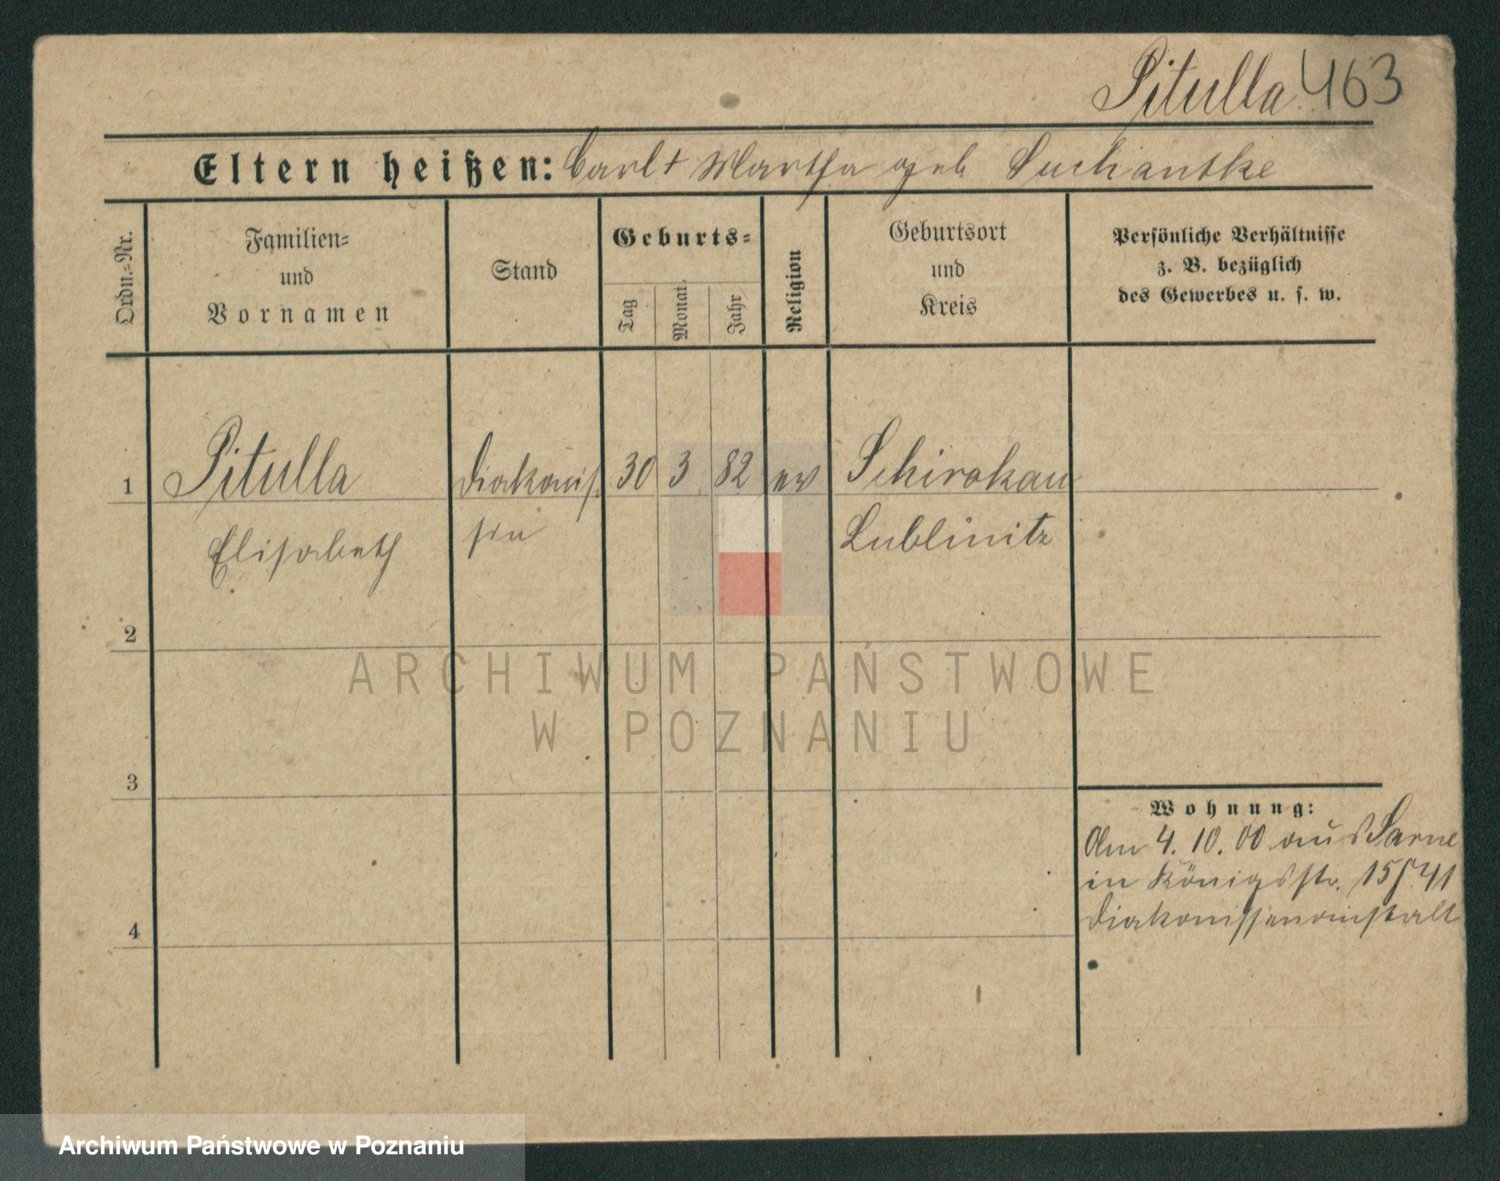 Pitulla 463
Eltern heißen: Carl + Martha geb Suchantke
Ordn.-Nr.
Familien-
und
Vornamen
Stand
Geburts-
Tag
Monat.
Jahr
Religion
Geburtsort
und
Kreis
Persönliche Verhältnisse
z. B. bezüglich
des Gewerbes u. s. w.
1 Pitulla Diakonis 30 3 82 ev Schirokau
Elisabeth sin Lublinitz
2
3
4
Wohnung:
Am 4. 10. 00 aus Sarne
in Königsstr. 15/41
Diakonissenanstalt
ARCHIWUM PAŃSTWOWE
W POZNANIU
Archiwum Państwowe w Poznaniu